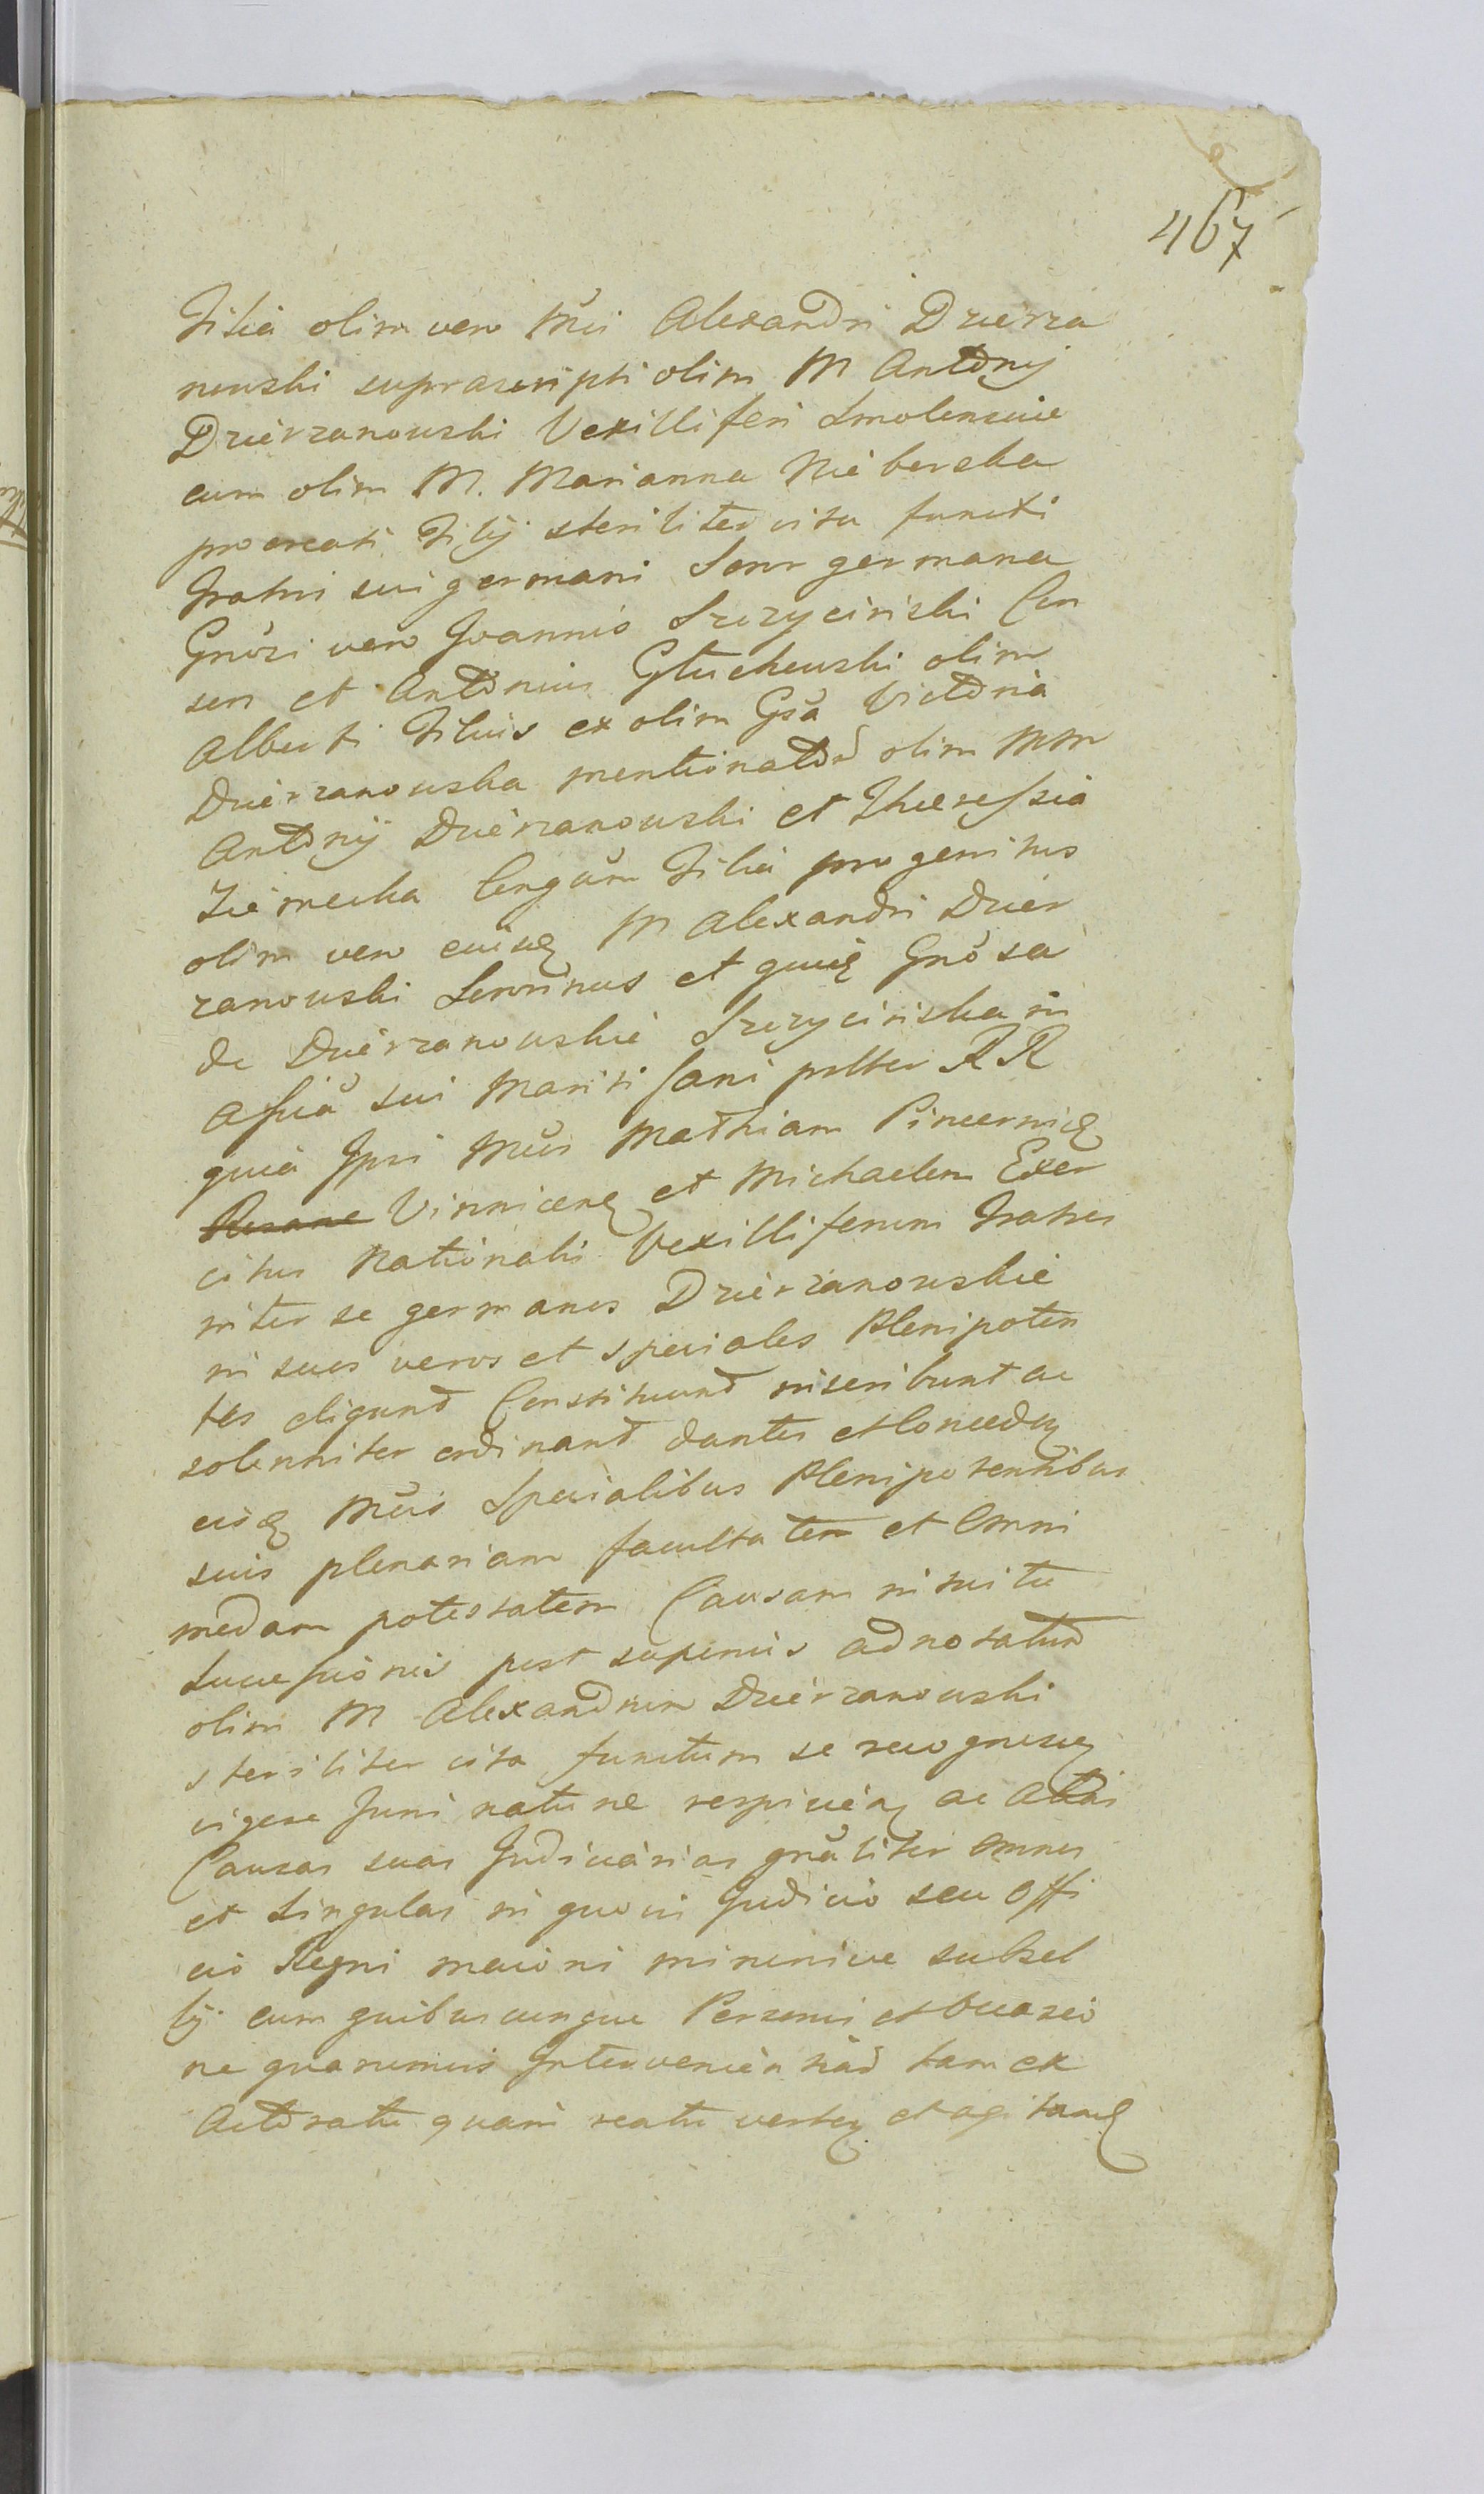 467
Filia olim vero Mci Alexandri Dzierza
nowski suprascripti olim M Antonij
Dzierzanowski Vexilliferi Smolenscie
cum olim M. Marianna Nieberska
procreati Filij steriliter vita functi
Fratri sui germani Soror germana
Gnosi vero Joannis Szczycinski Con
sors et Antonius Głuchowski olim
Alberti Filius ex olim Gsa Victoria
Dzierzanowska mentionator olim MM
Antonij Dzierzanowski et Theressia
Ziemecka Congum Filia progenitus
olim vero eiusq M Alexandri Dzier
zanowski Sororinus et quidę Gnosa
de Dzierzanowskie Szczycinska in
Assia sui Mariti sani pstter RR
quia Ipsi Mcus Mathiam Pincernię
Vinnicenę et Michaelem Exer
citus Nationalis Vexilliferum Fratres
inter se germanos Dzierzanowskie
in suos veros et speciales Plenipoten
tes eligunt Constituunt inscribunt ac
solenniter ordinant dantes et Concedę
eisdę Mcis Specialibus Plenipotentibus
suis plenariam facultatem et Omni
modam potestatem Causam intuitu
Successionis post superius adnotatum
olim M Alexandrum Dzierzanowski
steriliter vita functum se recognoscę
vigore Juris natu ne respicien ac Alias
Causas suas Judiciarias gnaliter omnes
et Singulas in quovis Judicio seu Offi
cio Regni maiori minorive subsel
lij cum quibuscunque Personis et Occasio
ne quarumvis Intervenientiad tam ex
Actoratu quam reatu verten et agitanę